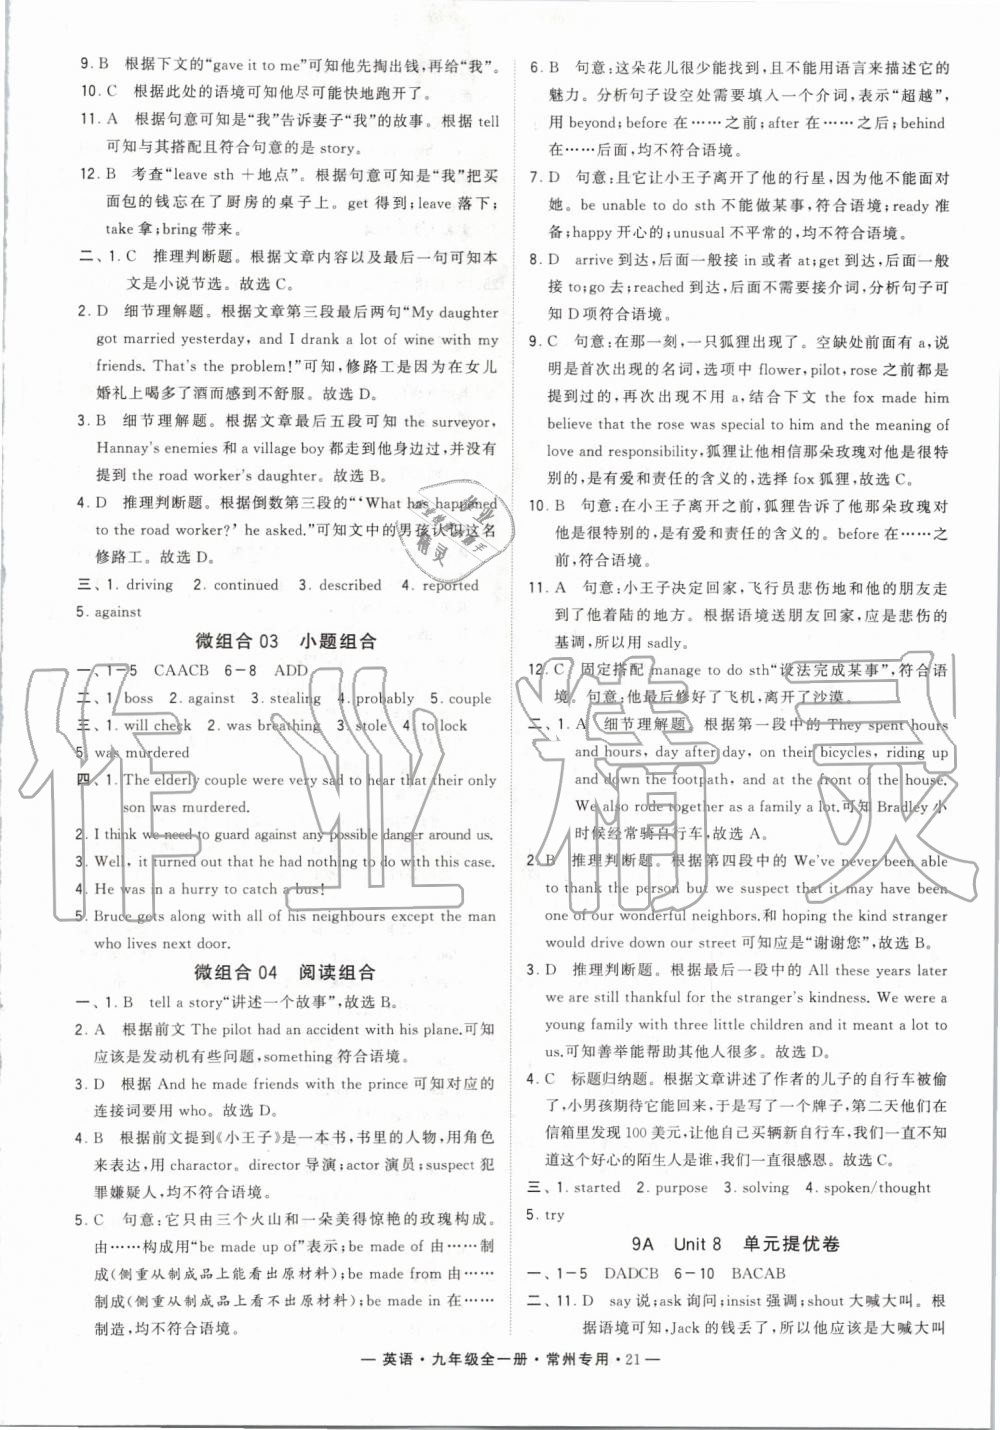 9. B　根据下文的“gave it to me”可知他先掏出钱,再给“我”。
10. C　根据此处的语境可知他尽可能快地跑开了。
11. A　根据句意可知是“我”告诉妻子“我”的故事。根据 tell
可知与其搭配且符合句意的是 story。
12. B　考查“leave sth ＋地点”。根据句意可知是“我”把买
面包的钱忘在了厨房的桌子上。get 得到;leave 落下;
take 拿;bring 带来。
二、1. C　推理判断题。根据文章内容以及最后一句可知本
文是小说节选。故选 C。
2. D　细节理解题。根据文章第三段最后两句“My daughter
got married yesterday, and I drank a lot of wine with my
friends. That's the problem!”可知,修路工是因为在女儿
婚礼上喝多了酒而感到不舒服。故选 D。
3. B　细节理解题。根据文章最后五段可知 the surveyor,
Hannay's enemies 和 a village boy 都走到他身边过,并没有
提到 the road worker's daughter。故选 B。
4. D　推理判断题。根据倒数第三段的“‘What has happened
to the road worker?’ he asked.”可知文中的男孩认识这名
修路工。故选 D。
三、1. driving　2. continued　3. described　4. reported
5. against
微组合 03　小题组合
一、1－5　CAACB　6－8　ADD
二、1. boss　2. against　3. stealing　4. probably　5. couple
三、1. will check　2. was breathing　3. stole　4. to lock
5. was murdered
四、1. The elderly couple were very sad to hear that their only
son was murdered.
2. I think we need to guard against any possible danger around us.
3. Well, it turned out that he had nothing to do with this case.
4. He was in a hurry to catch a bus!
5. Bruce gets along with all of his neighbours except the man
who lives next door.
微组合 04　阅读组合
一、1. B　tell a story“讲述一个故事”,故选 B。
2. A　根据前文 The pilot had an accident with his plane.可知
应该是发动机有些问题,something 符合语境。
3. D　根据 And he made friends with the prince 可知对应的
连接词要用 who。故选 D。
4. B　根据前文提到《小王子》是一本书,书里的人物,用角色
来表达,用 character。director 导演;actor 演员;suspect 犯
罪嫌疑人,均不符合语境。
5. C　句意:它只由三个火山和一朵美得惊艳的玫瑰构成。
由……构成用“be made up of”表示;be made of 由……制
成(侧重从制成品上能看出原材料);be made from 由……
制成(侧重从制成品上看不出原材料);be made in 在……
制造,均不符合语境。
6. B　句意:这朵花儿很少能找到,且不能用语言来描述它的
魅力。分析句子设空处需要填入一个介词,表示“超越”,
用 beyond;before 在……之前;after 在……之后;behind
在……后面,均不符合语境。
7. D　句意:且它让小王子离开了他的行星,因为他不能面对
她。be unable to do sth 不能做某事,符合语境;ready 准
备;happy 开心的;unusual 不平常的,均不符合语境。
8. D　arrive 到达,后面一般接 in 或者 at;get 到达,后面一般
接 to;go 去;reached 到达,后面不需接介词,分析句子可
知 D 项符合语境。
9. C　句意:在那一刻,一只狐狸出现了。空缺处前有 a,说
明是首次出现的名词,选项中 flower,pilot,rose 之前都是
提到过的,再次出现不用 a,结合下文 the fox made him
believe that the rose was special to him and the meaning of
love and responsibility,狐狸让他相信那朵玫瑰对他是很特
别的,是有爱和责任的含义的,选择 fox 狐狸,故选 C。
10. B　句意:在小王子离开之前,狐狸告诉了他那朵玫瑰对
他是很特别的,是有爱和责任的含义的。before 在……之
前,符合语境。
11. A　句意:小王子决定回家,飞行员悲伤地和他的朋友走
到了他着陆的地方。根据语境送朋友回家,应是悲伤的
基调,所以用 sadly。
12. C　固定搭配 manage to do sth“设法完成某事”,符合语
境。句意:他最后修好了飞机,离开了沙漠。
二、1. A　细节理解题。根据第一段中的 They spent hours
and hours, day after day, on their bicycles, riding up
and down the footpath, and at the front of the house.
We also rode together as a family a lot.可知 Bradley 小
时候经常骑自行车,故选 A。
2. B　推理判断题。根据第四段中的 We've never been able
to thank the person but we suspect that it may have been
one of our wonderful neighbors.和 hoping the kind stranger
would drive down our street 可知应是“谢谢您”,故选 B。
3. D　推理判断题。根据最后一段中的 All these years later
we are still thankful for the stranger's kindness. We were a
young family with three little children and it meant a lot to
us.可知善举能帮助其他人很多。故选 D。
4. C　标题归纳题。根据文章讲述了作者的儿子的自行车被偷
了,小男孩期待它能回来,于是写了一个牌子,第二天他们在
信箱里发现 100 美元,让他自己买辆新自行车,我们一直不知道
这个好心的陌生人是谁,我们一直充满感恩。故选 C。
三、1. started　2. purpose　3. solving　4. spoken/thought
5. try
9A　Unit 8　单元提优卷
一、1－5　DADCB　6－10　BACAB
二、11. D　say 说;ask 询问;insist 强调;shout 大喊大叫。根
据语境可知,Jack 的钱丢了,所以他应该是大喊大叫
— 英语·九年级全一册·常州专用·21 —
作业精灵